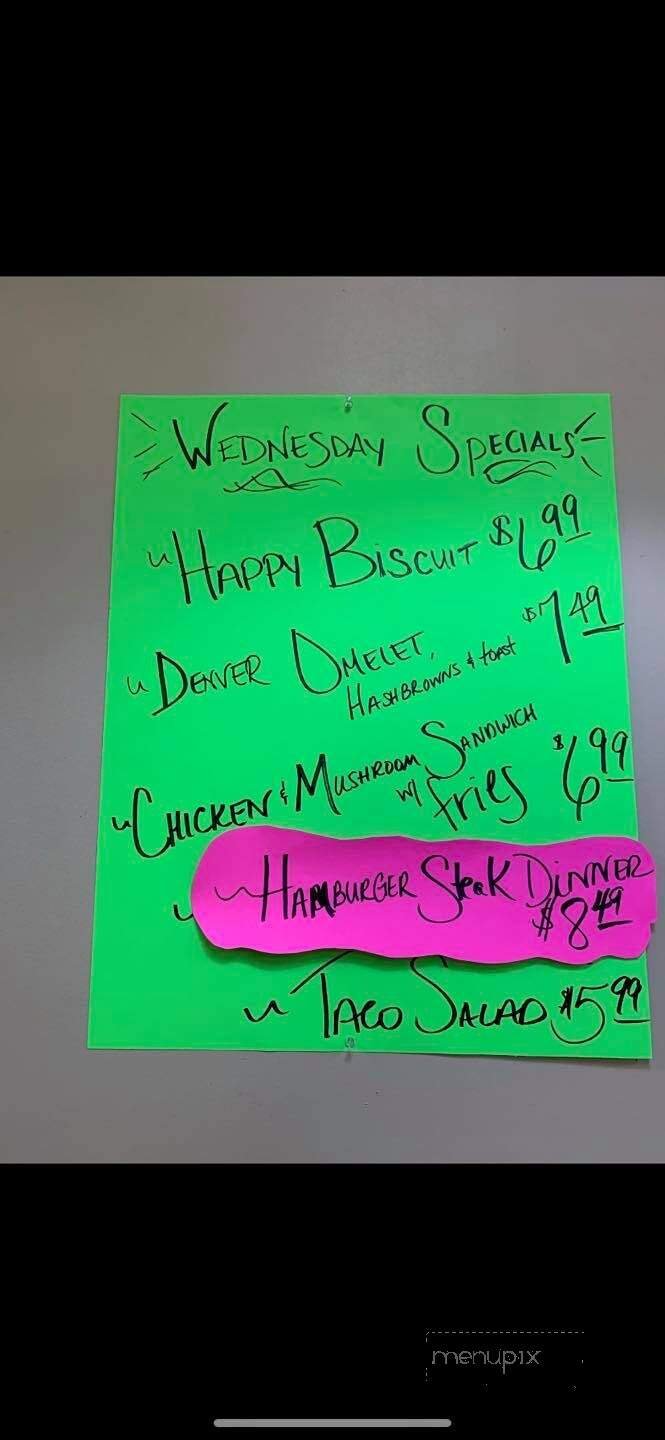 WEDNESDAY SPECIALS
HAPPY BISCUIT $6.99
DENVER OMELET, $7.49
HASHBROWNS & toast
CHICKEN & MUSHROOM SANDWICH $6.99
w/ fries
HAMBURGER Steak DINNER
$8.49
TACO SALAD $5.99
menupix